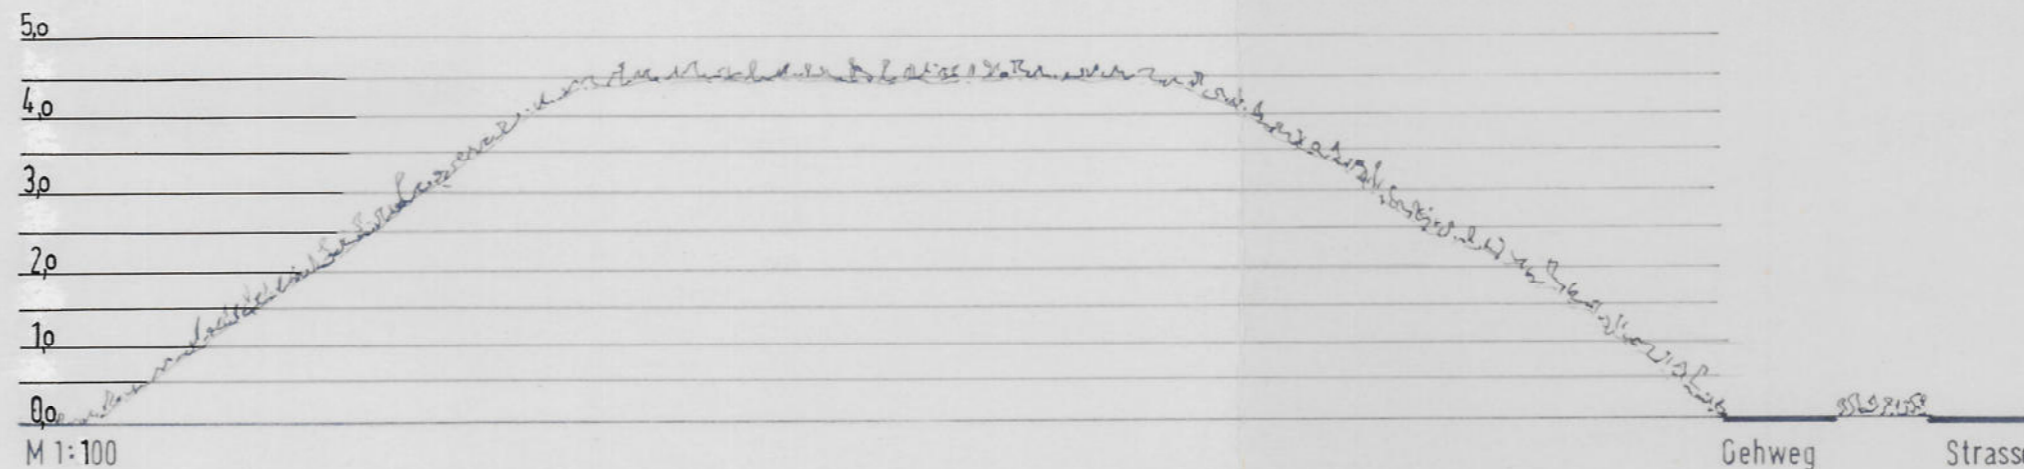 5,0
4,0
3,0
2,0
1,0
0,0
M 1:100
Gehweg Strasse